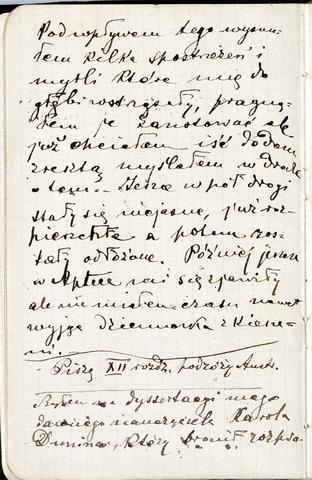 Pod wpływem tego wysnu-
łem kilka spostrzeżeń i
myśli które mię do
głębi wstrząsały, pragną-
łem je zanotować ale
już chciałem iść do dom
zresztą myślałem w drodze
o tem. Jeszcze w pół drogi
stały się niejasne, już roz-
pierzchłe a potem zos-
tały odłożone. Później jeszcze
w Aptece mi się zjawiły
ale nie miałem czasu nawet
wyjąć dziennika z kiesze-
ni.
Piszę XII rozdz. podróży Aust.
Byłem na dyssertacyi mego
dawnego nauczyciela Karola
Dunina, który bronił rozpra-